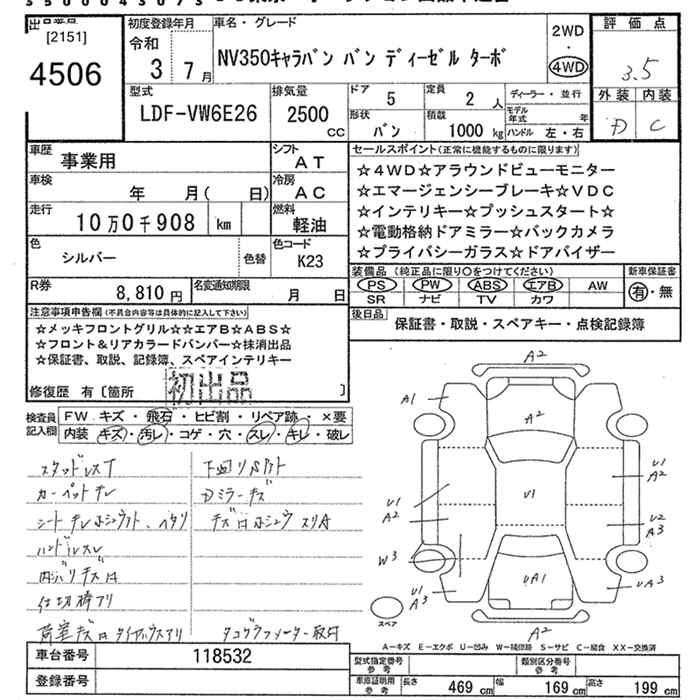 出品番号
[2151]
4506
初度登録年月
令和
3 7月
車名・グレード
NV350キャラバン バン ディーゼル ターボ
2WD
・
4WD
評価点
3.5
外装 内装
D C
型式
LDF-VW6E26
排気量
2500
CC
ドア
5
定員
2 人
形状
バン
積載
1000 kg
ディーラー・並行
モデル年式 年
ハンドル 左・右
車歴
事業用
シフト
AT
車検
年 月( 日)
冷房
AC
走行
10万0千908 km
燃料
軽油
色
シルバー
色替
色コード
K23
R券
8,810円
名変通知期限
月 日
セールスポイント(正常に機能するものに限ります)
☆4WD☆アラウンドビューモニター
☆エマージェンシーブレーキ☆VDC
☆インテリキー☆プッシュスタート☆
☆電動格納ドアミラー☆バックカメラ
☆プライバシーガラス☆ドアバイザー
装備品 (純正品に限り〇をつけてください)
PS PW ABS エアB AW
SR ナビ TV カワ
新車保証書
有・無
後日品
保証書・取説・スペアキー・点検記録簿
注意事項申告欄(不具合内容等は具体的に記入して下さい)
☆メッキフロントグリル☆☆エアB☆ABS☆
☆フロント&リアカラードバンパー☆抹消出品
☆保証書、取説、記録簿、スペアインテリキー
修復歴 有〔箇所 〕
初出品
検査員
記入欄
FW キズ・飛石・ヒビ割・リペア跡・×要
内装 キズ・汚レ・コゲ・穴・スレ・キレ・破レ
スタッドレスT
カーペットキレ
シートキレホシュウアト、ヘタリ
ハンドルスレ
内バリキズ穴
仕切棒アリ
下回リサビアト
Dミラーキズ
タコグラフメーター取付
A2
A1
A2
U1
U1
A2
U1
A2
U2
A3
W3
U1
A3
UA1
UA3
A2
スペア
A-キズ E-エクボ U-凹み W-補修跡 S-サビ C-腐食 XX-交換済
車台番号
118532
登録番号
型式指定番号
参考
類別区分番号
参考
車庫証明用
参考
長さ 469 cm 幅 169 cm 高さ 199 cm